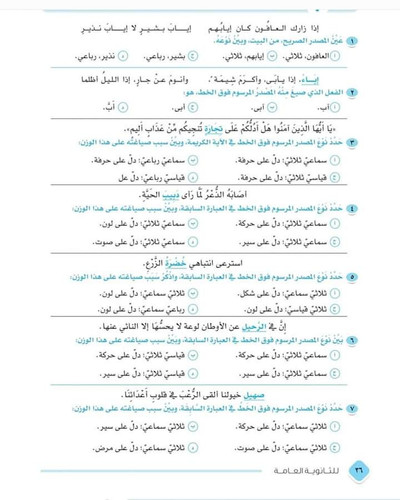 إذا زارك العافون كان إيابهم إياب بشير لا إياب نذير
١ عيّن المصدر الصريح، من البيت، وبيّن نوعه.
أ العافون، ثلاثي. ب إيابهم، ثلاثي. ج بشير، رباعي. د نذير، رباعي.
إباءً، إذا يأبى، وأكرم شيمة"، وأنومُ عن جارٍ، إذا الليل أظلما
٢ الفعل الذي صيغ منه المصدر المرسوم فوق الخط، هو:
أ آب. ب أبى. ج أبى. د أبَّ.
«يا أيها الذين آمنوا هل أدلكم على تجارة تنجيكم من عذاب أليم».
٣ حدد نوع المصدر المرسوم فوق الخط في الآية الكريمة، وبيّن سبب صياغته على هذا الوزن:
أ سماعي ثلاثي: دلّ على حرفة. ب سماعي رباعي: دلّ على حرفة.
ج قياسي ثلاثي: دلّ على حرفة. د قياسي رباعي: دلّ على
أصابه الذعر لما رأى دبيب الحية.
٤ حدد نوع المصدر المرسوم فوق الخط في العبارة السابقة، وبيّن سبب صياغته على هذا الوزن:
أ ثلاثي سماعي: دلّ على حركة. ب ثلاثي سماعي: دلّ على لون.
ج ثلاثي سماعي: دلّ على سير. د ثلاثي سماعي: دلّ على صوت.
استرعى انتباهي خضرة الزرع.
٥ حدد نوع المصدر المرسوم فوق الخط في العبارة السابقة، واذكر سبب صياغته على هذا الوزن:
أ ثلاثي سماعي: دلّ على شكل. ب ثلاثي قياسي: دلّ على لون.
ج ثلاثي سماعي: دلّ على لون. د رباعي سماعي: دلّ على لون.
إنّ في الرحيل عن الأوطان لوعة لا يحسّها إلا النائي عنها.
٦ بيّن نوع المصدر المرسوم فوق الخط في العبارة السابقة، وبيّن سبب صياغته على هذا الوزن:
أ ثلاثي سماعي: دلّ على حركة. ب ثلاثي قياسي: دلّ على حركة.
ج ثلاثي سماعي: دلّ على سير. د ثلاثي قياسي: دلّ على سير.
صهيل خيولنا ألقى الرعب في قلوب أعدائنا.
٧ حدد نوع المصدر المرسوم فوق الخط في العبارة السابقة، وبيّن سبب صياغته على هذا الوزن:
أ ثلاثي سماعي: دلّ على حركة. ب ثلاثي سماعي: دلّ على سير.
ج ثلاثي سماعي: دلّ على صوت. د ثلاثي سماعي: دلّ على مرض.
٢٦ للثانوية العامة